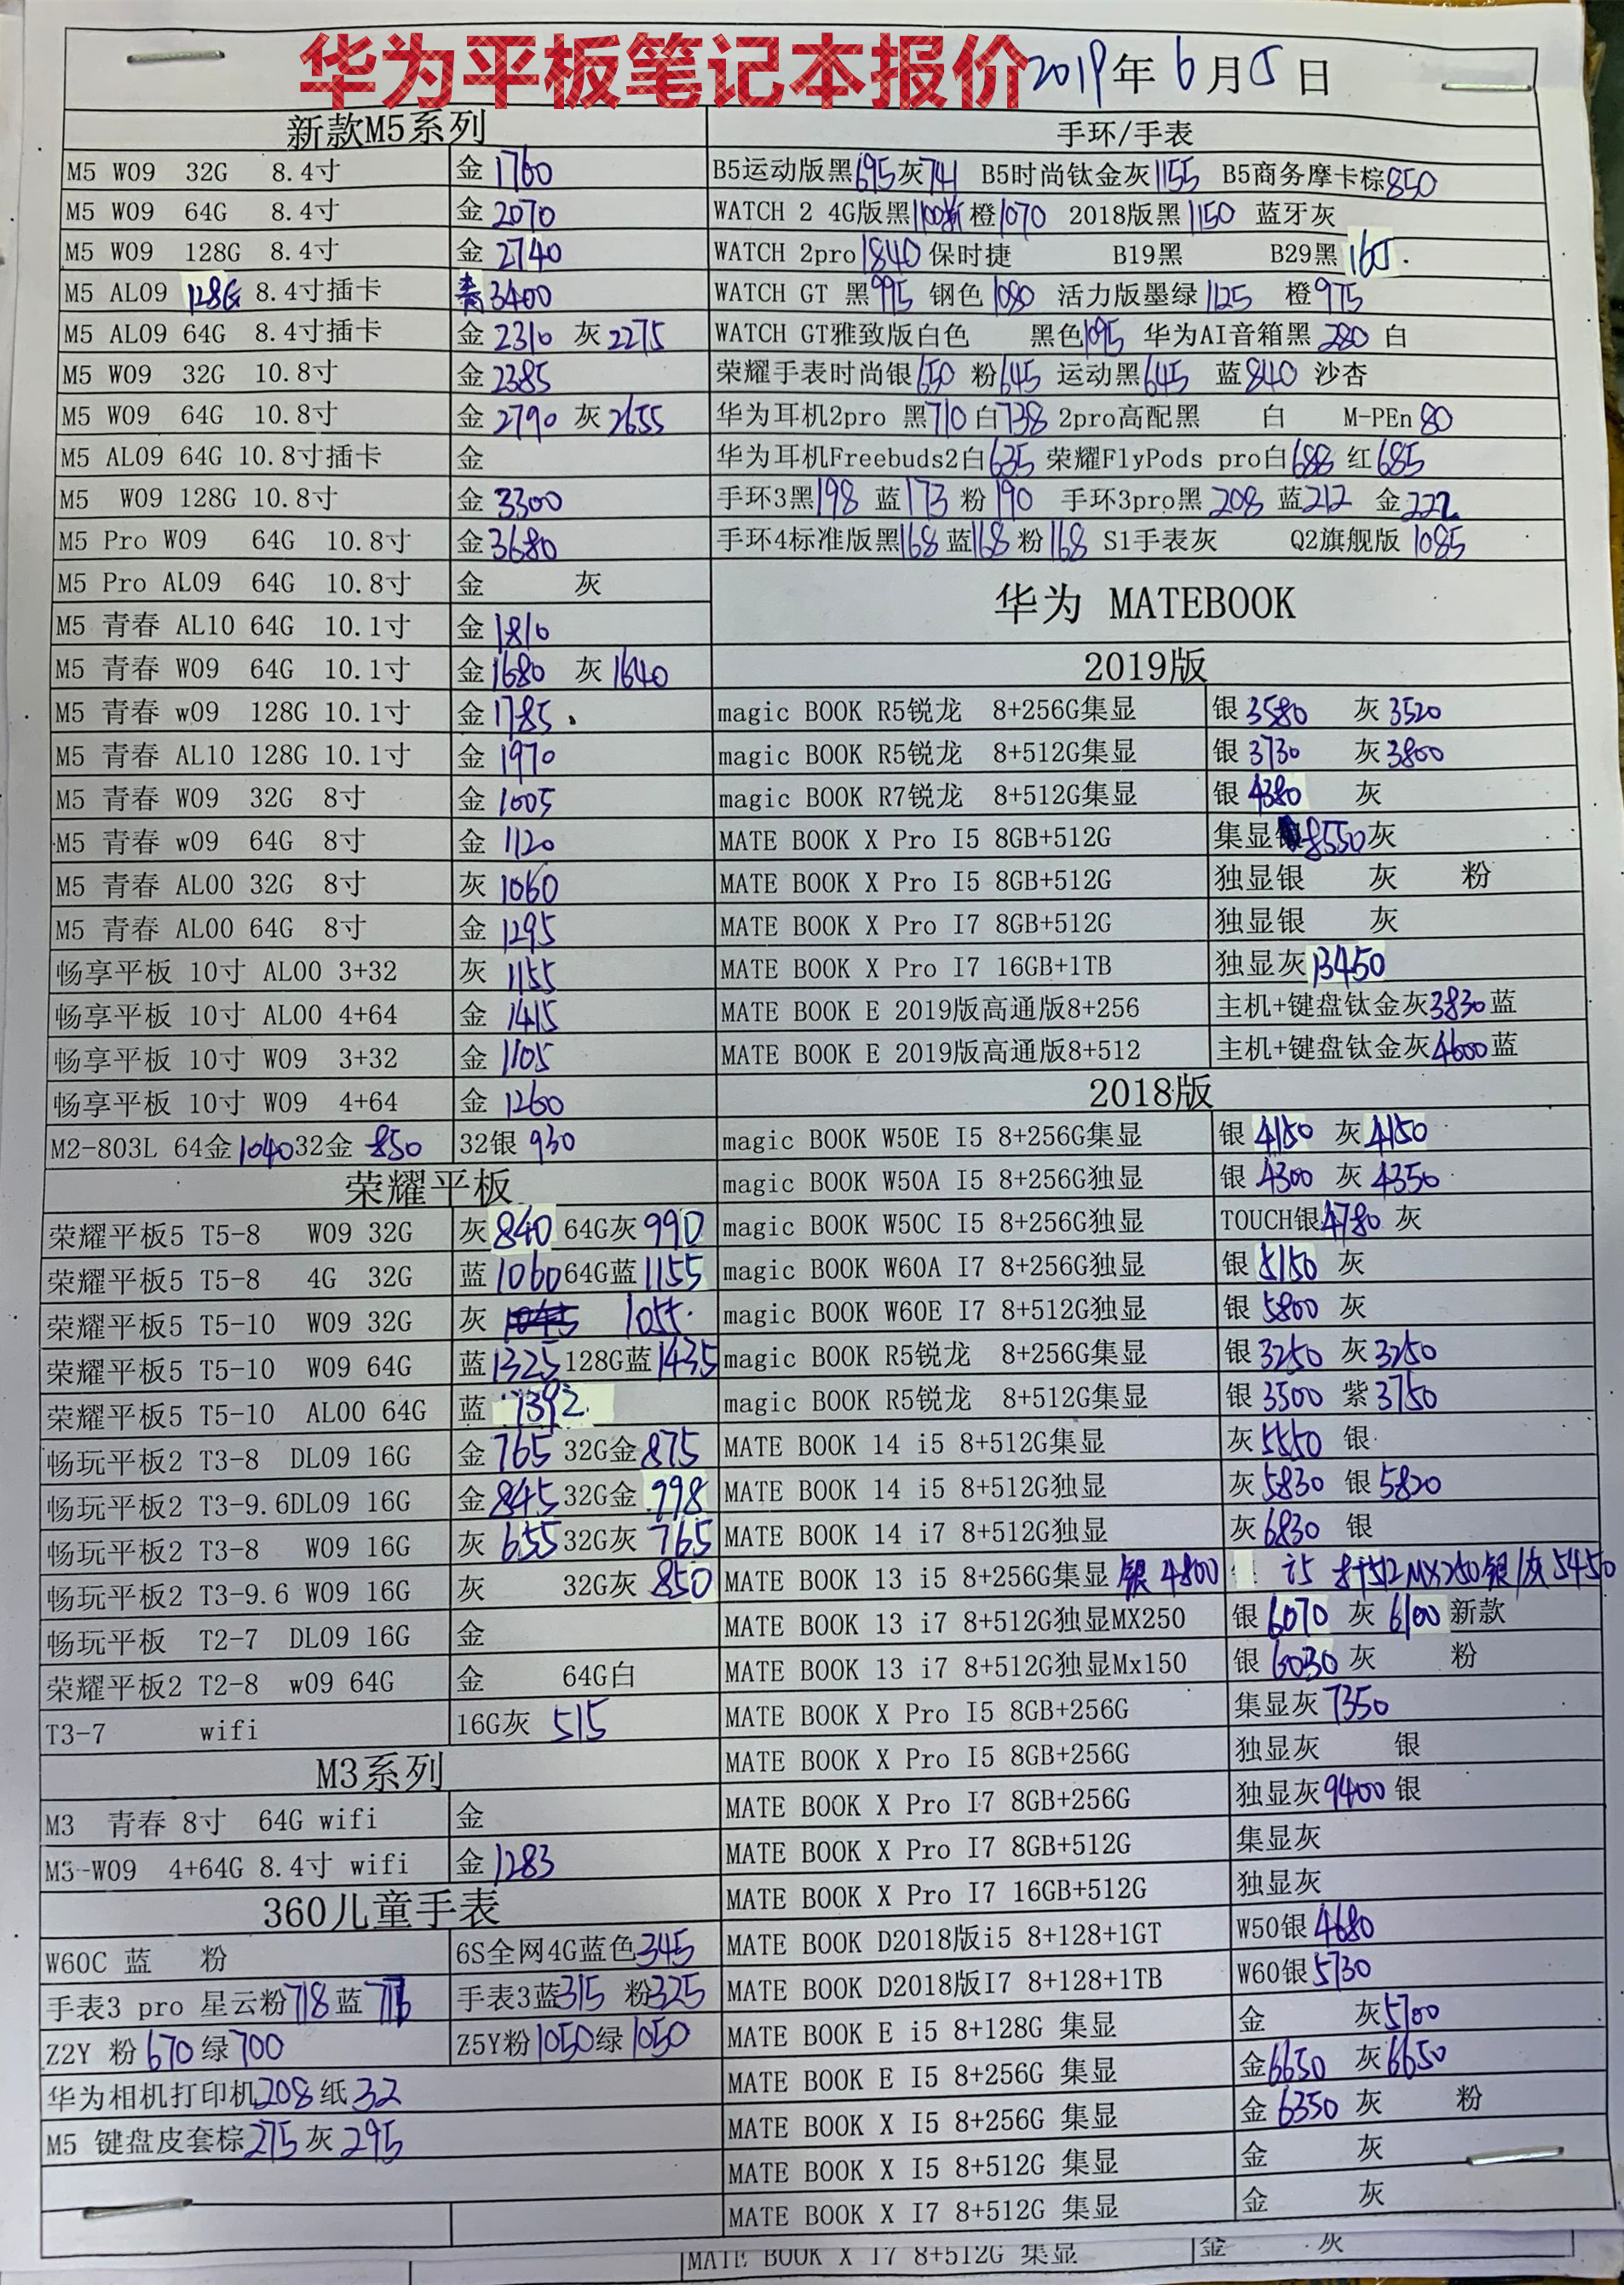 华为平板笔记本报价 2019年6月5日
新款M5系列
M5 W09 32G 8.4寸 金1760
M5 W09 64G 8.4寸 金2070
M5 W09 128G 8.4寸 金2740
M5 AL09 128G 8.4寸插卡 3400
M5 AL09 64G 8.4寸插卡 金2310 灰2275
M5 W09 32G 10.8寸 金2385
M5 W09 64G 10.8寸 金2790 灰2655
M5 AL09 64G 10.8寸插卡 金
M5 W09 128G 10.8寸 金3300
M5 Pro W09 64G 10.8寸 金3680
M5 Pro AL09 64G 10.8寸 金 灰
M5 青春 AL10 64G 10.1寸 金1810
M5 青春 W09 64G 10.1寸 金1680 灰1640
M5 青春 w09 128G 10.1寸 金1785
M5 青春 AL10 128G 10.1寸 金1970
M5 青春 W09 32G 8寸 金1005
M5 青春 w09 64G 8寸 金1120
M5 青春 AL00 32G 8寸 灰1060
M5 青春 AL00 64G 8寸 金1295
畅享平板 10寸 AL00 3+32 灰1155
畅享平板 10寸 AL00 4+64 金1415
畅享平板 10寸 W09 3+32 金1105
畅享平板 10寸 W09 4+64 金1260
M2-803L 64金1040 32金850 32银930
荣耀平板
荣耀平板5 T5-8 W09 32G 灰840 64G灰990
荣耀平板5 T5-8 4G 32G 蓝1060 64G蓝1155
荣耀平板5 T5-10 W09 32G 灰 1055.
荣耀平板5 T5-10 W09 64G 蓝1325 128G蓝1435
荣耀平板5 T5-10 AL00 64G 蓝1392
畅玩平板2 T3-8 DL09 16G 金765 32G金875
畅玩平板2 T3-9.6DL09 16G 金845 32G金998
畅玩平板2 T3-8 W09 16G 灰655 32G灰765
畅玩平板2 T3-9.6 W09 16G 灰 32G灰850
畅玩平板 T2-7 DL09 16G 金
荣耀平板2 T2-8 w09 64G 金 64G白
T3-7 wifi 16G灰 515
M3系列
M3 青春 8寸 64G wifi 金
M3-W09 4+64G 8.4寸 wifi 金1283
360儿童手表
W60C 蓝 粉 6S全网4G蓝色345
手表3 pro 星云粉718 蓝 手表3蓝315 粉325
Z2Y 粉670 绿700 Z5Y粉1050绿1050
华为相机打印机208 纸32
M5 键盘皮套棕275 灰295
手环/手表
B5运动版黑695灰741 B5时尚钛金灰1155 B5商务摩卡棕850
WATCH 2 4G版黑1100 橙1070 2018版黑1150 蓝牙灰
WATCH 2pro1840 保时捷 B19黑 B29黑165.
WATCH GT 黑995 钢色1080 活力版墨绿1125 橙975
WATCH GT雅致版白色 黑色1095 华为AI音箱黑280 白
荣耀手表时尚银650 粉645 运动黑645 蓝840 沙杏
华为耳机2pro 黑710 白738 2pro高配黑 白 M-PEn 80
华为耳机Freebuds2白635 荣耀FlyPods pro白688 红685
手环3黑198 蓝173 粉190 手环3pro黑208 蓝212 金222
手环4标准版黑168 蓝168 粉168 S1手表灰 Q2旗舰版 1085
华为 MATEBOOK
2019版
magic BOOK R5锐龙 8+256G集显 银3580 灰3520
magic BOOK R5锐龙 8+512G集显 银3730 灰3800
magic BOOK R7锐龙 8+512G集显 银4380 灰
MATE BOOK X Pro I5 8GB+512G 集显 8550灰
MATE BOOK X Pro I5 8GB+512G 独显银 灰 粉
MATE BOOK X Pro I7 8GB+512G 独显银 灰
MATE BOOK X Pro I7 16GB+1TB 独显灰13450
MATE BOOK E 2019版高通版8+256 主机+键盘钛金灰3830蓝
MATE BOOK E 2019版高通版8+512 主机+键盘钛金灰4600蓝
2018版
magic BOOK W50E I5 8+256G集显 银4150 灰4150
magic BOOK W50A I5 8+256G独显 银4300 灰4350
magic BOOK W50C I5 8+256G独显 TOUCH银4780 灰
magic BOOK W60A I7 8+256G独显 银5150 灰
magic BOOK W60E I7 8+512G独显 银5800 灰
magic BOOK R5锐龙 8+256G集显 银3250 灰3250
magic BOOK R5锐龙 8+512G集显 银3500 紫3750
MATE BOOK 14 i5 8+512G集显 灰5550 银
MATE BOOK 14 i5 8+512G独显 灰5830 银5820
MATE BOOK 14 i7 8+512G独显 灰6830 银
MATE BOOK 13 i5 8+256G集显 银4800 i5 8+512 MX250银/灰5450
MATE BOOK 13 i7 8+512G独显MX250 银6070 灰6100新款
MATE BOOK 13 i7 8+512G独显Mx150 银6030 灰 粉
MATE BOOK X Pro I5 8GB+256G 集显灰7350
MATE BOOK X Pro I5 8GB+256G 独显灰 银
MATE BOOK X Pro I7 8GB+256G 独显灰9400 银
MATE BOOK X Pro I7 8GB+512G 集显灰
MATE BOOK X Pro I7 16GB+512G 独显灰
MATE BOOK D2018版i5 8+128+1GT W50银4680
MATE BOOK D2018版I7 8+128+1TB W60银5730
MATE BOOK E i5 8+128G 集显 金 灰5700
MATE BOOK E I5 8+256G 集显 金6650 灰6650
MATE BOOK X I5 8+256G 集显 金6350 灰 粉
MATE BOOK X I5 8+512G 集显 金 灰
MATE BOOK X I7 8+512G 集显 金 灰
MATE BOOK X I7 8+512G 集显 金 灰